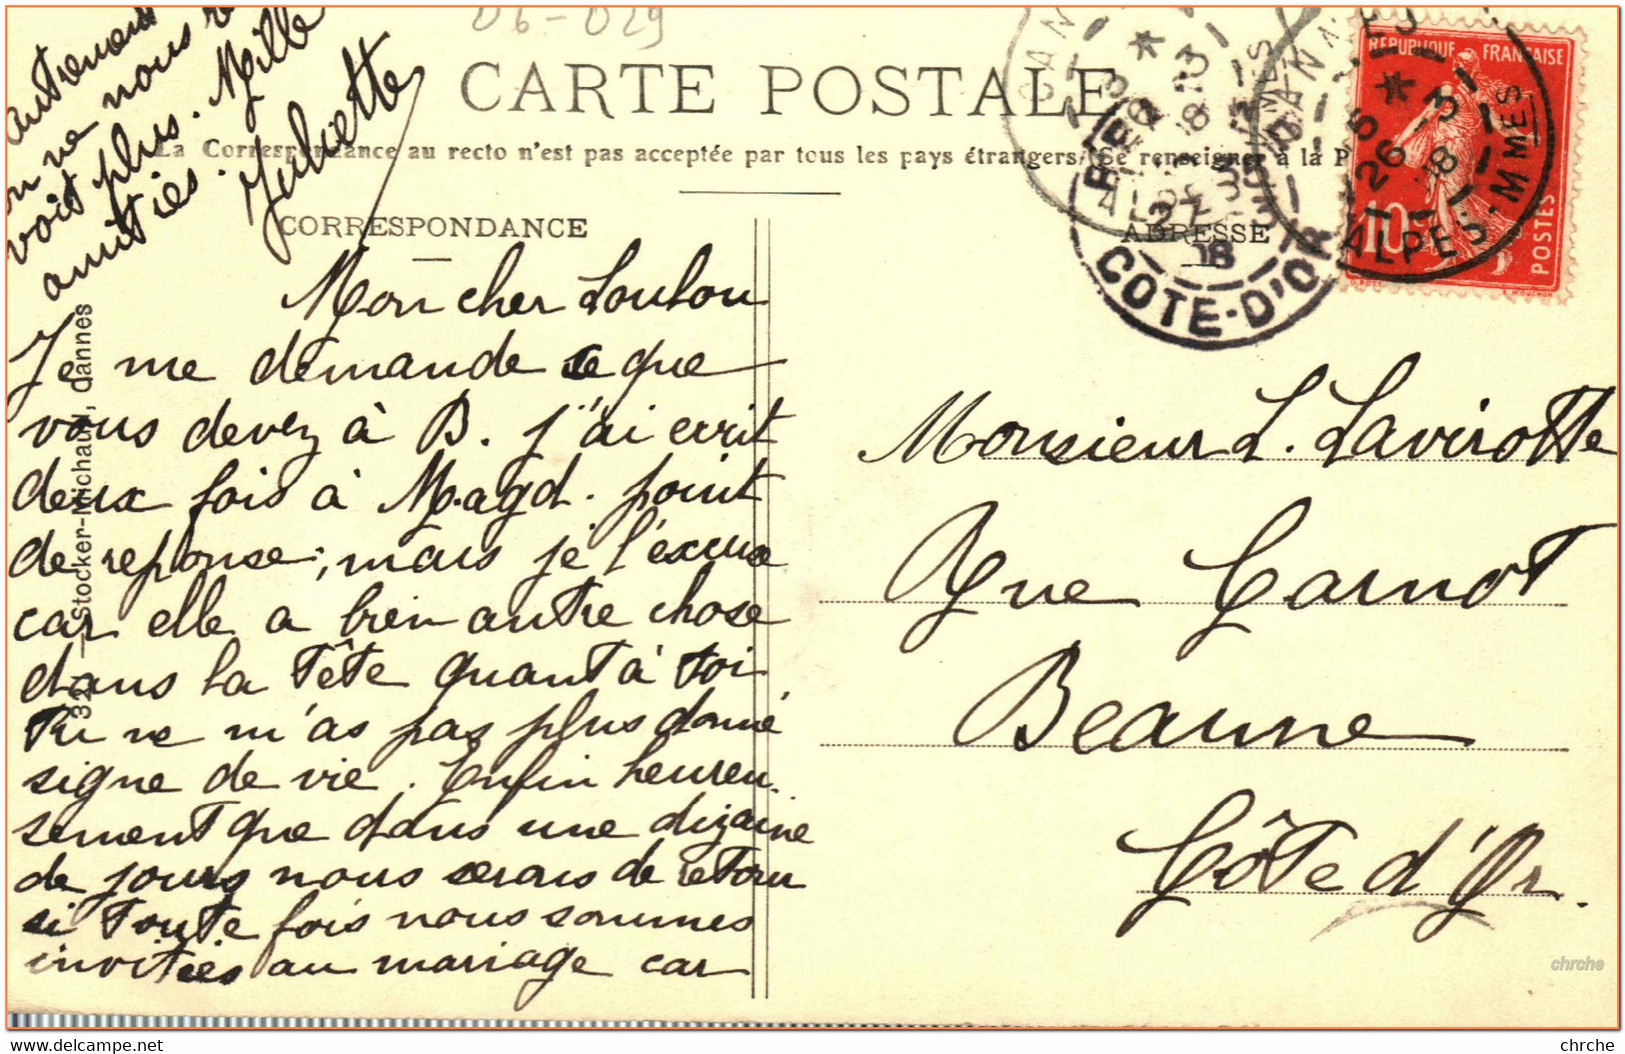 06-029
CARTE POSTALE
La Correspondance au recto n'est pas acceptée par tous les pays étrangers (Se renseigner à la P
CORRESPONDANCE
ADRESSE
Mon cher Loulou
Je me demande ce que
vous devez à B. j'ai ecrit
deux fois à Magd. point
de reponse; mais je l'excuse
car elle a bien autre chose
dans la tête quant à toi
Tu ne m'as pas plus donné
signe de vie. Enfin heureu.
sement que dans une dizaine
de jours nous serons de retour
si toute fois nous sommes
invitées au mariage car
autrement
on ne nous
voit plus. Mille
amitiés.
Juliette
Stocker-Michaud, Cannes
Monsieur L. Lavirotte
Rue Carnot
Beaune
Côte d'Or.
REPUBLIQUE FRANÇAISE
10
POSTES
26 - 3
08
ALPES-MMES
BEAUNE
27
08
COTE-D'OR
chrche
www.delcampe.net
chrche